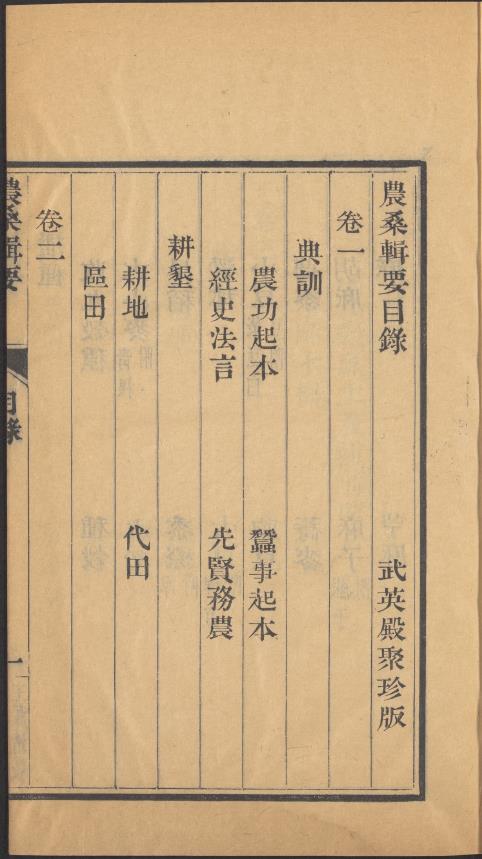 農桑輯要目錄 武英殿聚珍版
卷一
典訓
農功起本 蠶事起本
經史法言 先賢務農
耕墾
耕地 代田
區田
卷二
農桑輯要 目錄 一